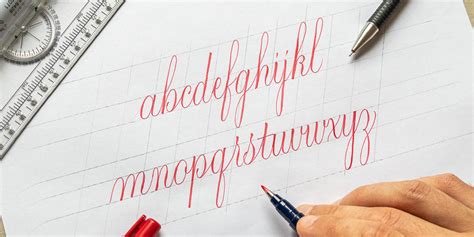 abcdefghijkl
mnopqrstuvwxyz